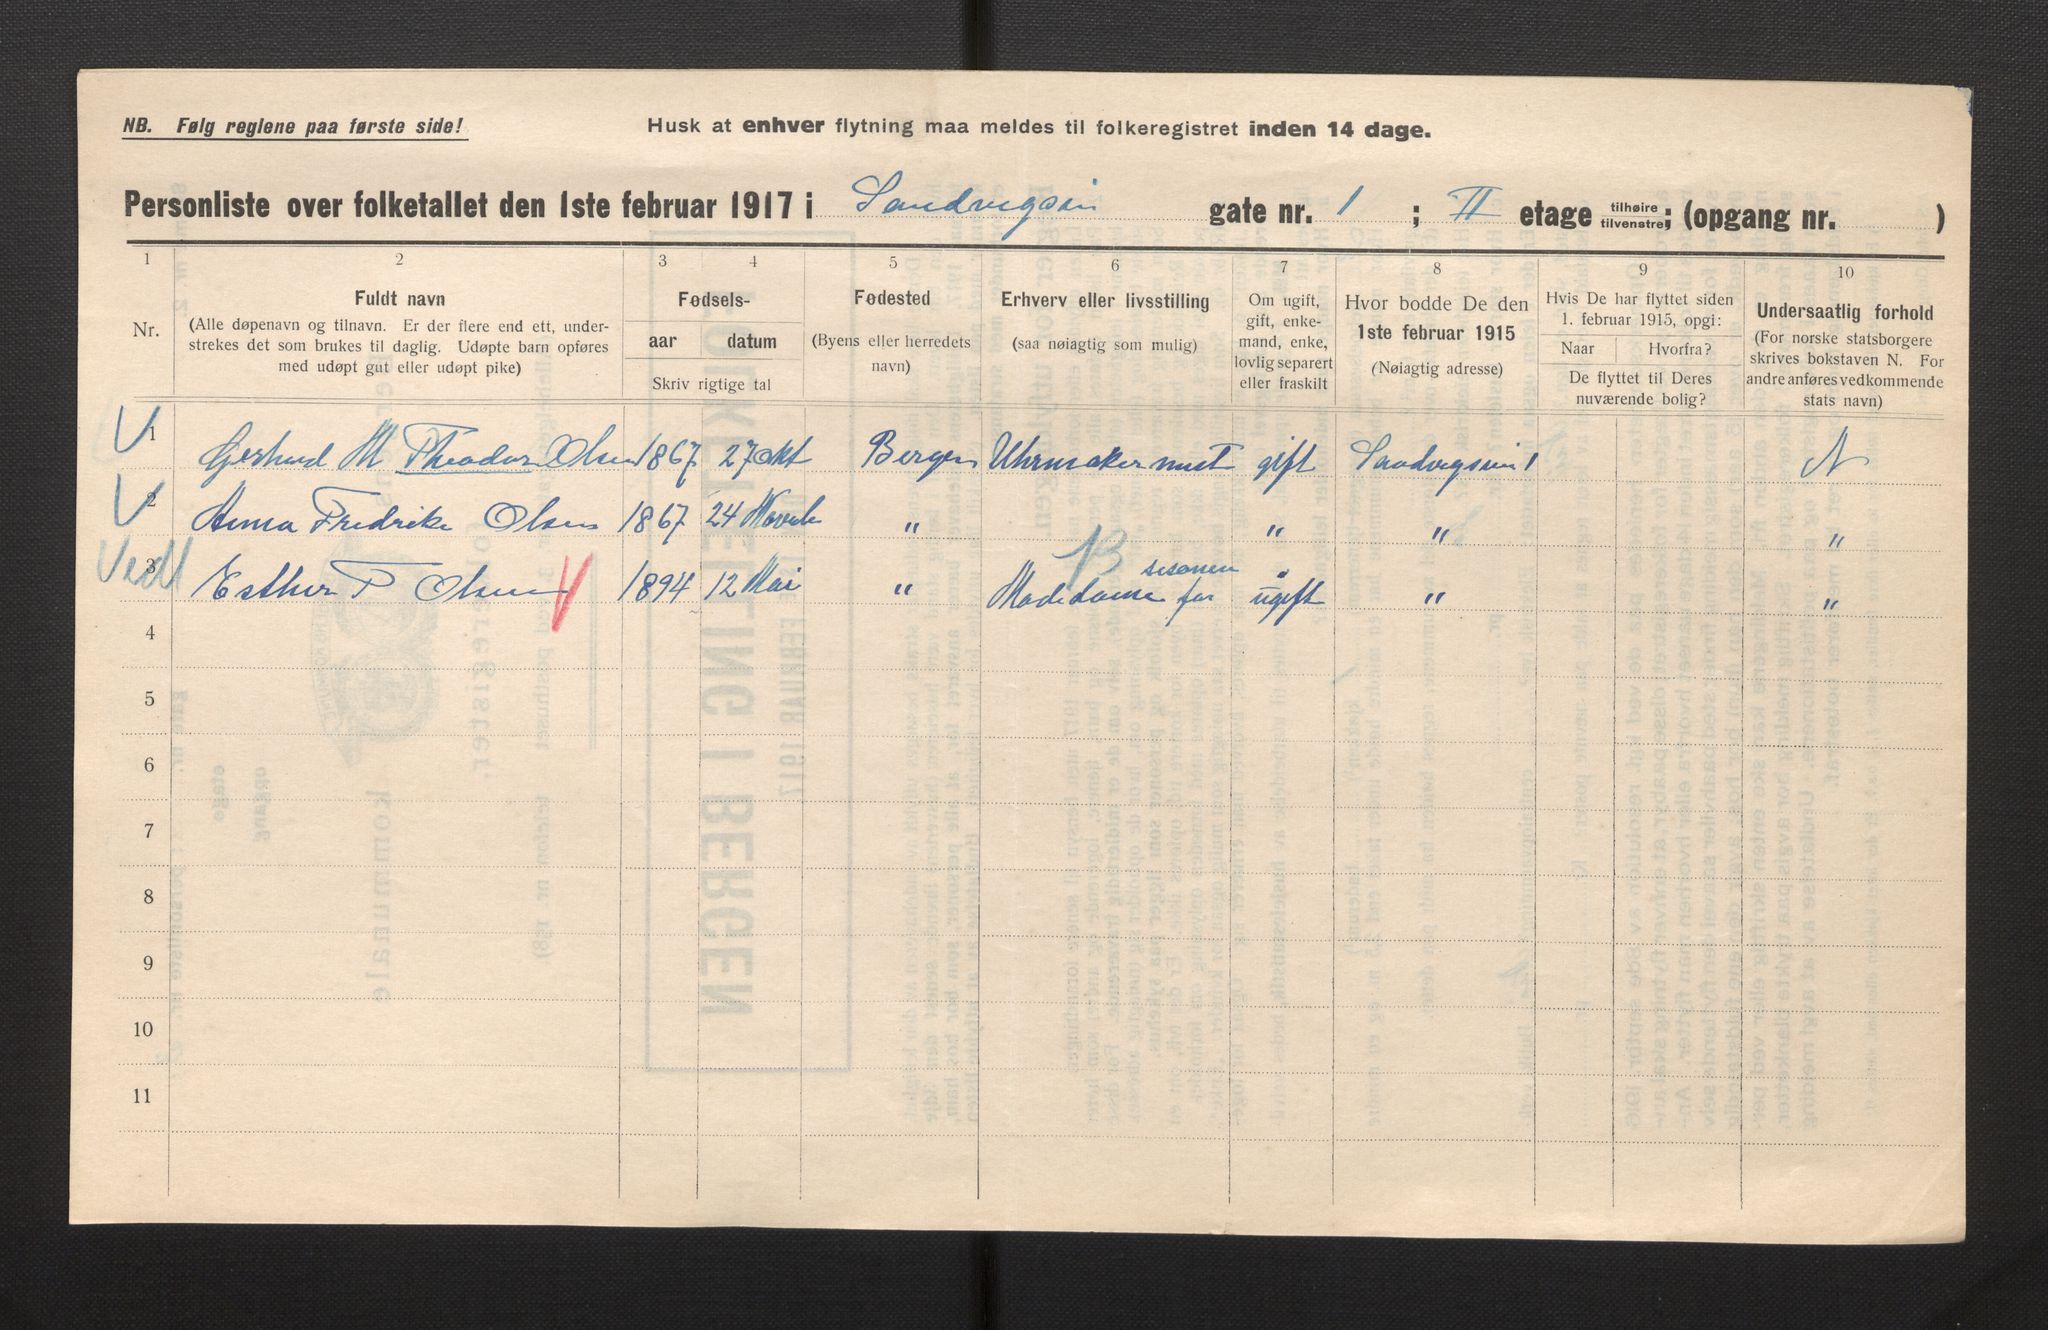 NB. Følg reglene paa første side!
Husk at enhver flytning maa meldes til folkeregistret inden 14 dage.
Personliste over folketallet den 1ste februar 1917 i Sandvigsvei gate nr. 1 ; II etage tilhøire tilvenstre; (opgang nr. )
1 2 3 4 5 6 7 8 9 10
Nr.
Fuldt navn
(Alle døpenavn og tilnavn. Er der flere end ett, under-
strekes det som brukes til daglig. Udøpte barn opføres
med udøpt gut eller udøpt pike)
Fødsels-
aar datum
Skriv rigtige tal
Fødested
(Byens eller herredets
navn)
Erhverv eller livsstilling
(saa nøiagtig som mulig)
Om ugift,
gift, enke-
mand, enke,
lovlig separert
eller fraskilt
Hvor bodde De den
1ste februar 1915
(Nøiagtig adresse)
Hvis De har flyttet siden
1. februar 1915, opgi:
Naar Hvorfra?
De flyttet til Deres
nuværende bolig?
Undersaatlig forhold
(For norske statsborgere
skrives bokstaven N. For
andre anføres vedkommende
stats navn)
V 1 Gerhard M Theodor Olsen 1867 27 Okt Bergen Uhrmaker mest gift Sandvigsvei 1 N
V 2 Anna Fredrike Olsen 1867 24 Novb " " " "
Vedl 3 Esther T Olsen V 1894 12 Mai " 13 sesonen Modedame for ugift " "
4
5
6
7
8
9
10
11